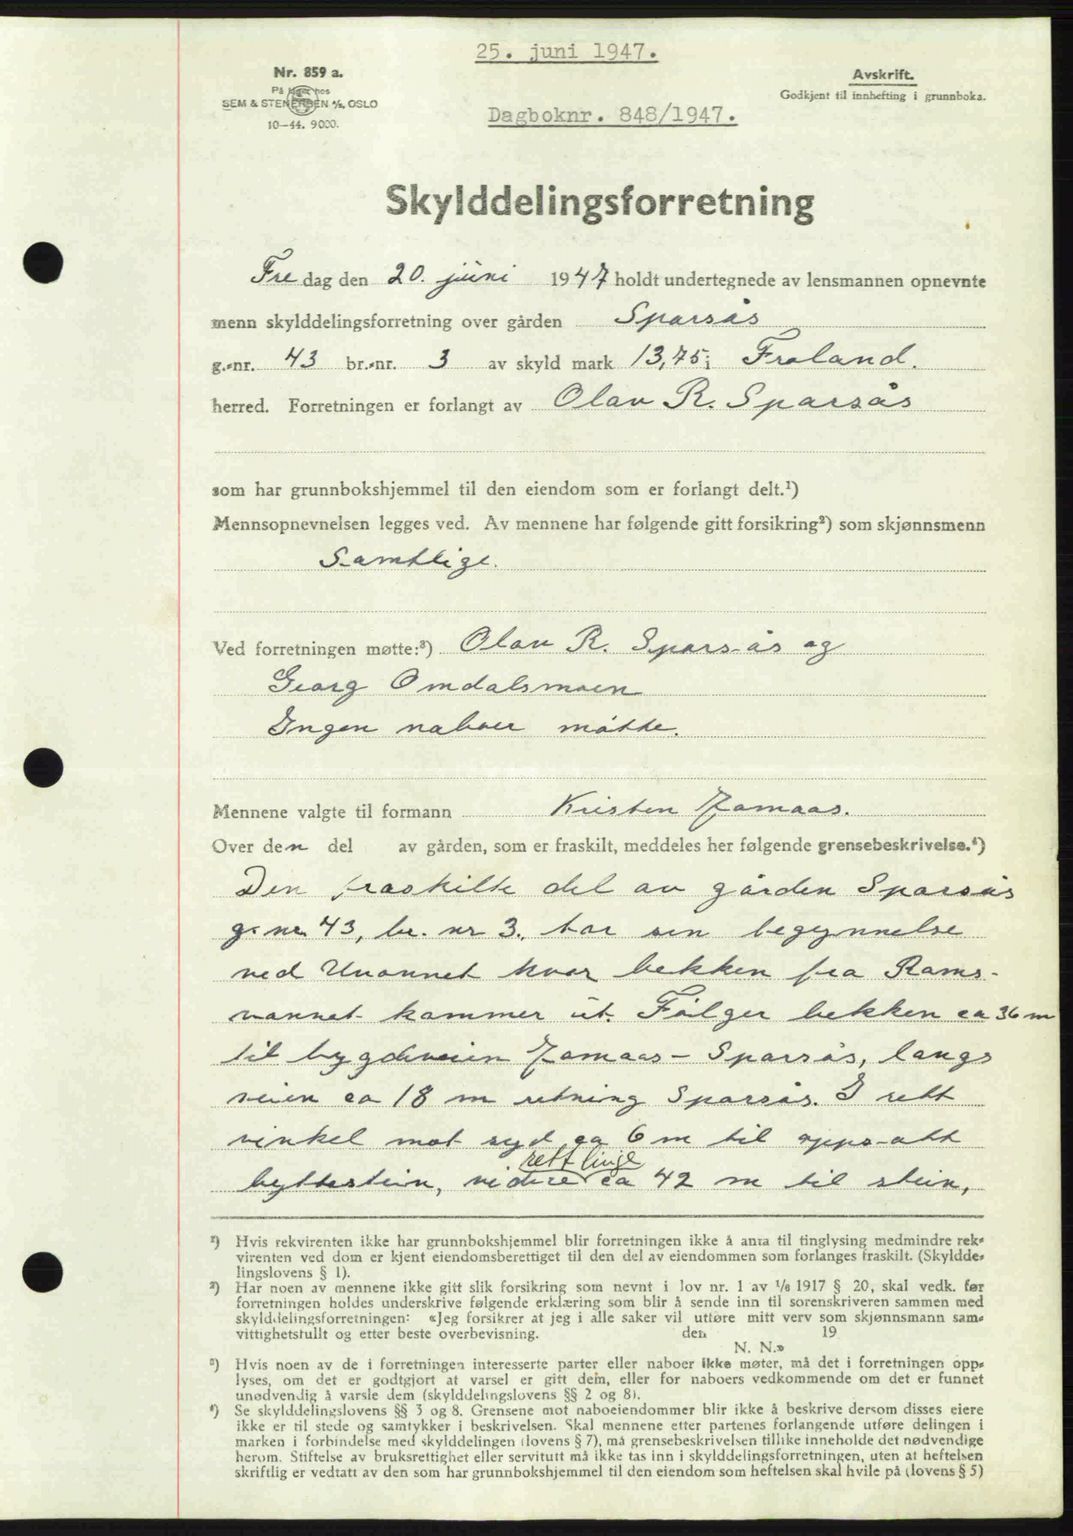 25. juni 1947.
Nr. 859 a.
På lager hos
SEM & STENERSEN A/S, OSLO
10—44. 9000.
Avskrift.
Godkjent til innhefting i grunnboka.
Dagboknr. 848/1947.
Skylddelingsforretning
Fre dag den 20. juni 1947 holdt undertegnede av lensmannen opnevnte
menn skylddelingsforretning over gården Sparsås
g.-nr. 43 br.-nr. 3 av skyld mark 13,75 i Froland.
herred. Forretningen er forlangt av Olav R. Sparsås
som har grunnbokshjemmel til den eiendom som er forlangt delt.¹)
Mennsopnevnelsen legges ved. Av mennene har følgende gitt forsikring²) som skjønnsmenn
Samtlige.
Ved forretningen møtte:³) Olav R. Sparsås og
Georg Omdalsmoen
Ingen naboer møtte.
Mennene valgte til formann Kristen Jomaas.
Over den del av gården, som er fraskilt, meddeles her følgende grensebeskrivelse.⁴)
Den fraskilte del av gården Sparsås
g. nr. 43, br. nr 3., tar sin begynnelse
ved hvor bekken fra Rams-
vannet kommer ut. Følger bekken ca 36 m
til bygdeveien Jomaas - Sparsås, langs
veien ca 18 m retning Sparsås. I rett
vinkel mot syd ca 6 m til opps-att
byttestein, videre rett linje ca 42 m til stein,
¹) Hvis rekvirenten ikke har grunnbokshjemmel blir forretningen ikke å anta til tinglysing medmindre rek-
virenten ved dom er kjent eiendomsberettiget til den del av eiendommen som forlanges fraskilt. (Skyldde-
lingslovens § 1).
²) Har noen av mennene ikke gitt slik forsikring som nevnt i lov nr. 1 av 1/6 1917 § 20, skal vedk. før
forretningen holdes underskrive følgende erklæring som blir å sende inn til sorenskriveren sammen med
skylddelingsforretningen: «Jeg forsikrer at jeg i alle saker vil utføre mitt verv som skjønnsmann sam-
vittighetsfullt og etter beste overbevisning. den 19
N. N.»
³) Hvis noen av de i forretningen interesserte parter eller naboer ikke møter, må det i forretningen opp-
lyses, om det er godtgjort at varsel er gitt dem, eller for naboers vedkommende om det er funnet
unødvendig å varsle dem (skylddelingslovens §§ 2 og 8).
⁴) Se skylddelingslovens §§ 3 og 8. Grensene mot naboeiendommer blir ikke å beskrive dersom disses eiere
ikke er til stede og samtykker i beskrivelsen. Skal mennene etter partenes forlangende utføre delingen i
marken i forbindelse med skylddelingen (lovens § 7), må grensebeskrivelsen tillike inneholde det nødvendige
herom. Stiftelse av bruksrettighet eller servitutt må ikke tas inn i skylddelingsforretningen, uten at heftelsen
skriftlig er vedtatt av den som har grunnbokshjemmel til den eiendom som heftelsen skal hvile på (lovens § 5)